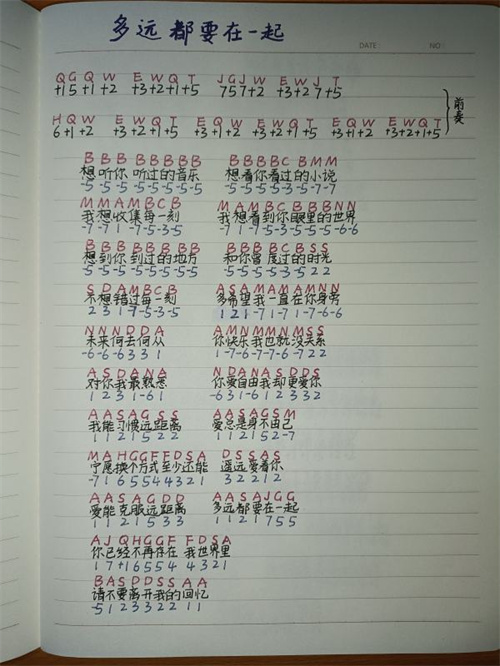 多远都要在一起
DATE: NO:
Q G Q W E W Q T J G J W E W J T
+1 5 +1 +2 +3 +2 +1 +5 7 5 7 +2 +3 +2 7 +5
前奏
H Q W E W Q T E Q W E W Q T E Q W E W Q T
6 +1 +2 +3 +2 +1 +5 +3 +1 +2 +3 +2 +1 +5 +3 +1 +2 +3 +2 +1 +5
B B B B B B B B B B B B C B M M
想听你 听过的音乐 想看你看过的小说
-5 -5 -5 -5 -5 -5 -5 -5 -5 -5 -5 -5 -3 -5 -7 -7
M M A M B C B M A M B C B B B N N
我想收集每一刻 我想看到你眼里的世界
-7 -7 1 -7 -5 -3 -5 -7 1 -7 -5 -3 -5 -5 -5 -6 -6
B B B B B B B B B B B B C B S S
想到你 到过的地方 和你曾度过的时光
-5 -5 -5 -5 -5 -5 -5 -5 -5 -5 -5 -5 -3 -5 2 2
S D A M B C B A S A M A M A M N N
不想错过每一刻 多希望我一直在你身旁
2 3 1 -7 -5 -3 -5 1 2 1 -7 1 -7 1 -7 -6 -6
N N N D D A A M N M M N M S S
未来何去何从 你快乐我也就没关系
-6 -6 -6 3 3 1 1 -7 -6 -7 -7 -6 -7 2 2
A S D A N A N D A N A S D D S
对你我最熟悉 你爱自由我却更爱你
1 2 3 1 -6 1 -6 3 1 -6 1 2 3 3 2
A A S A G S S A A S A G S M
我能习惯远距离 爱总是身不由己
1 1 2 1 5 2 2 1 1 2 1 5 2 -7
M A H G G F F D S A D S S A S
宁愿换个方式至少还能 遥远爱着你
-7 1 6 5 5 4 4 3 2 1 3 2 2 1 2
A A S A G D D A A S A J G G
爱能克服远距离 多远都要在一起
1 1 2 1 5 3 3 1 1 2 1 7 5 5
A J Q H G G F F D S A
你已经不再存在 我世界里
1 7 +1 6 5 5 4 4 3 2 1
B A S D D S S A A
请不要离开我的回忆
-5 1 2 3 3 2 2 1 1